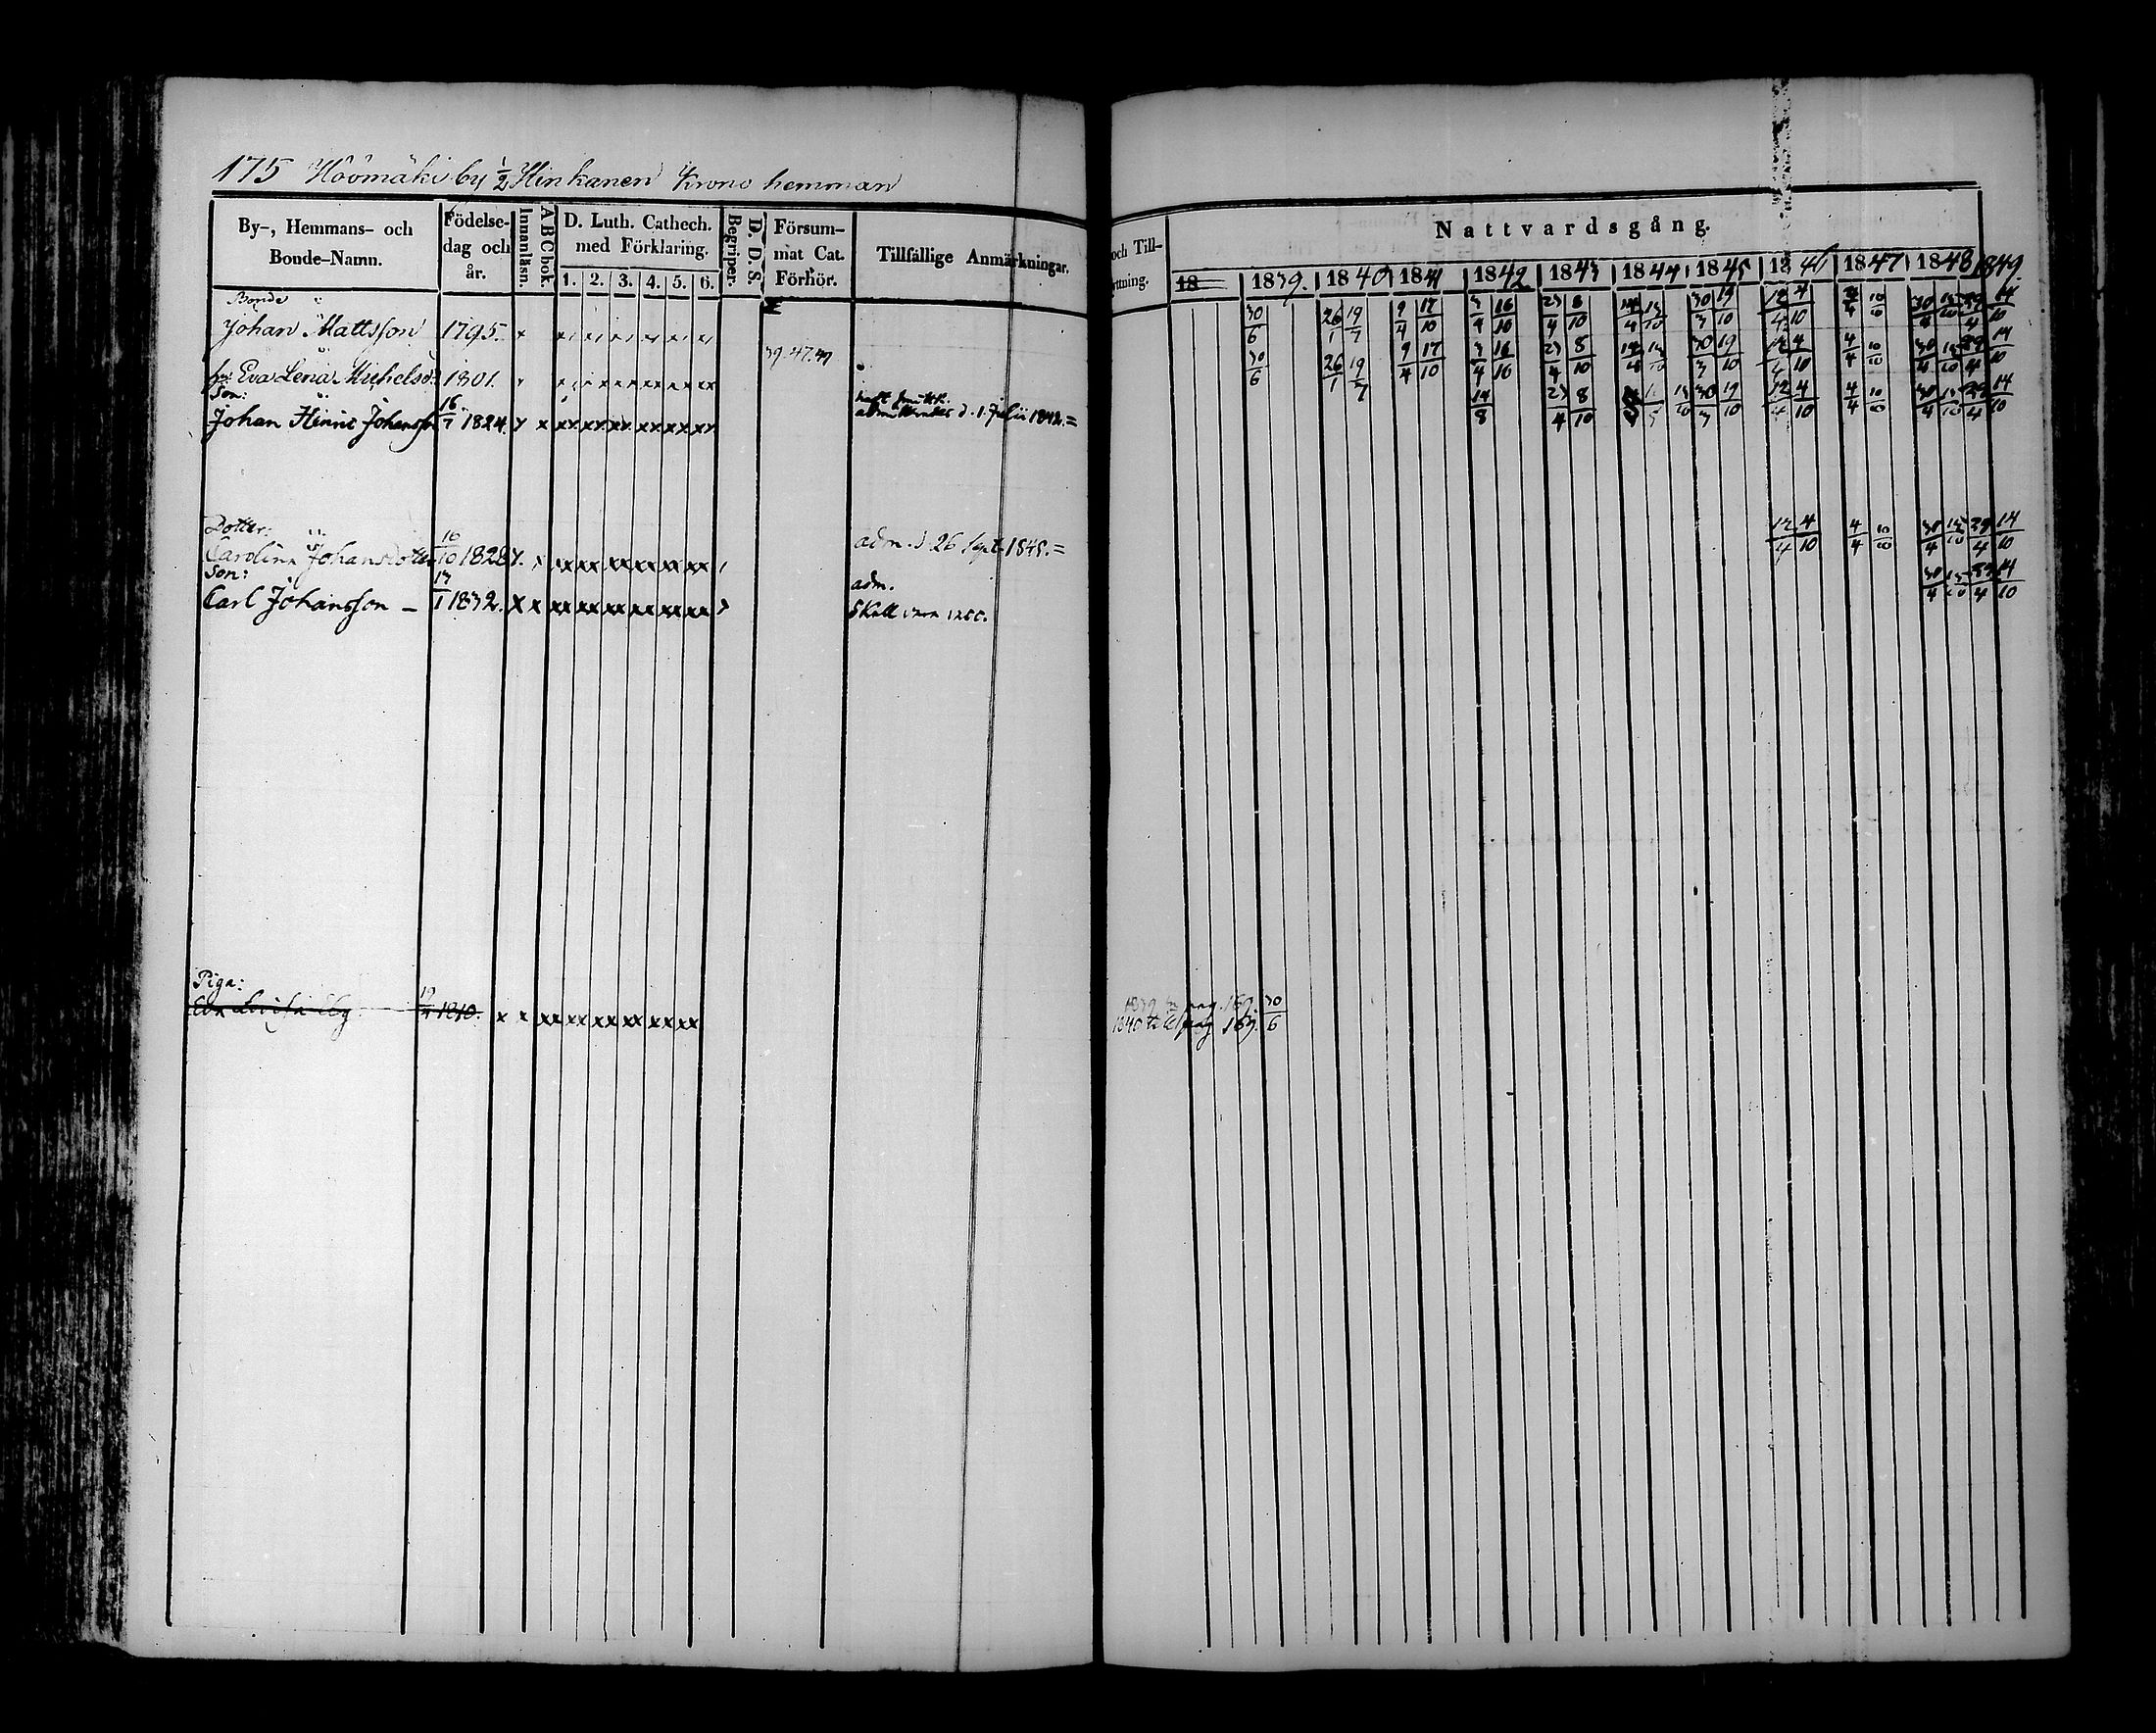 175 Höömäki by 1/2 Hinkanen Krono hemman
By-, Hemmans- och Bonde-Namn.
Födelse-dag och år.
Innanläsn.
ABCbok.
D. Luth. Cathech. med Förklaring.
1. 2. 3. 4. 5. 6.
Begriper.
D. D. S.
Försum-mat Cat. Förhör.
Tillfällige Anmärkningar.
och Till-
Nattvardsgång.
18 1839. 1840 1841 1842 1843 1844 1845 1846 1847 1848 1849.
Bonde
Johan Mattsson 1795. 30/6 26/1 19/7 9/4 17/10 3/4 16/10 23/4 8/10 14/4 13/10 30/3 19/10 12/4 4/10 4/4 10/10 30/4 15/10 29/4 14/10
39. 47.
Eva Lena Michelsd: 1801. 30/6 26/1 19/7 9/4 17/10 3/4 16/10 23/4 8/10 14/4 13/10 30/3 19/10 12/4 4/10 4/4 10/10 30/4 15/10 29/4 14/10
Son:
Johan Henric Johansson 16/7 1824. admitterades d. 1. Julii 1842. = 14/8 23/4 8/10 13/10 30/3 19/10 12/4 4/10 4/4 10/10 30/4 15/10 29/4 14/10
Dotter:
Carolina Johansdotter 16/10 1828. adm. d. 26 Sept. 1845. = 12/4 4/10 4/4 10/10 30/4 15/10 29/4 14/10
Son:
Carl Johansson 17/1 1832. adm. 30/4 15/10 29/4 14/10
Piga:
Eva 1810. 1839 fr pag. 169. 30/6
1840 till pag 169.